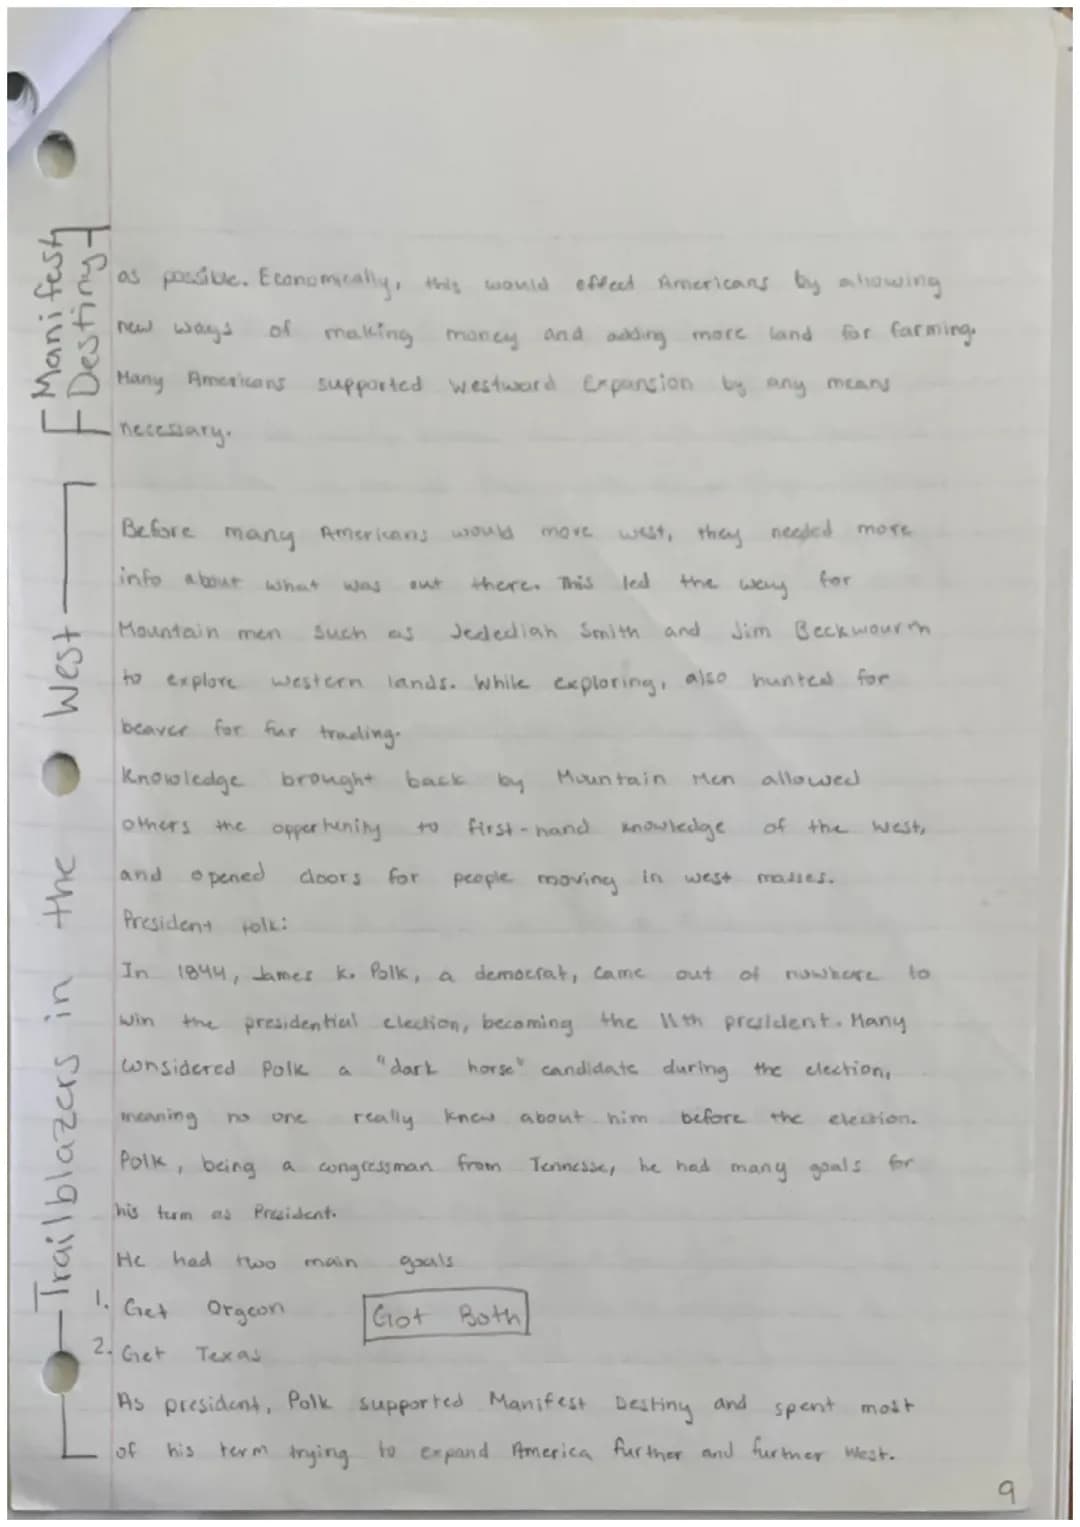 Manifest
Destiny
as possible. Economically, this would effect Americans by allowing
new ways of making money and adding more land for farming.
Many Americans supported Westward Expansion by any means
necessary.
Trailblazers in the West
Before many Americans would move west, they needed more
info about what was out there. This led the way for
Mountain men such as Jedediah Smith and Jim Beckwourth
to explore western lands. While exploring, also hunted for
beaver for fur trading.
Knowledge brought back by Mountain Men allowed
others the oppertunity to first-hand knowledge of the west,
and opened doors for people moving in west masses.
President Polk:
In 1844, James K. Polk, a democrat, came out of nowhere to
win the presidential election, becoming the 11th president. Many
considered Polk a "dark horse" candidate during the election,
meaning no one really knew about him before the election.
Polk, being a congressman from Tennesse, he had many goals for
his term as President.
He had two main goals
1. Get Orgeon
Got Both
2. Get Texas
As president, Polk supported Manifest Destiny and spent most
of his term trying to expand America further and further West.
9